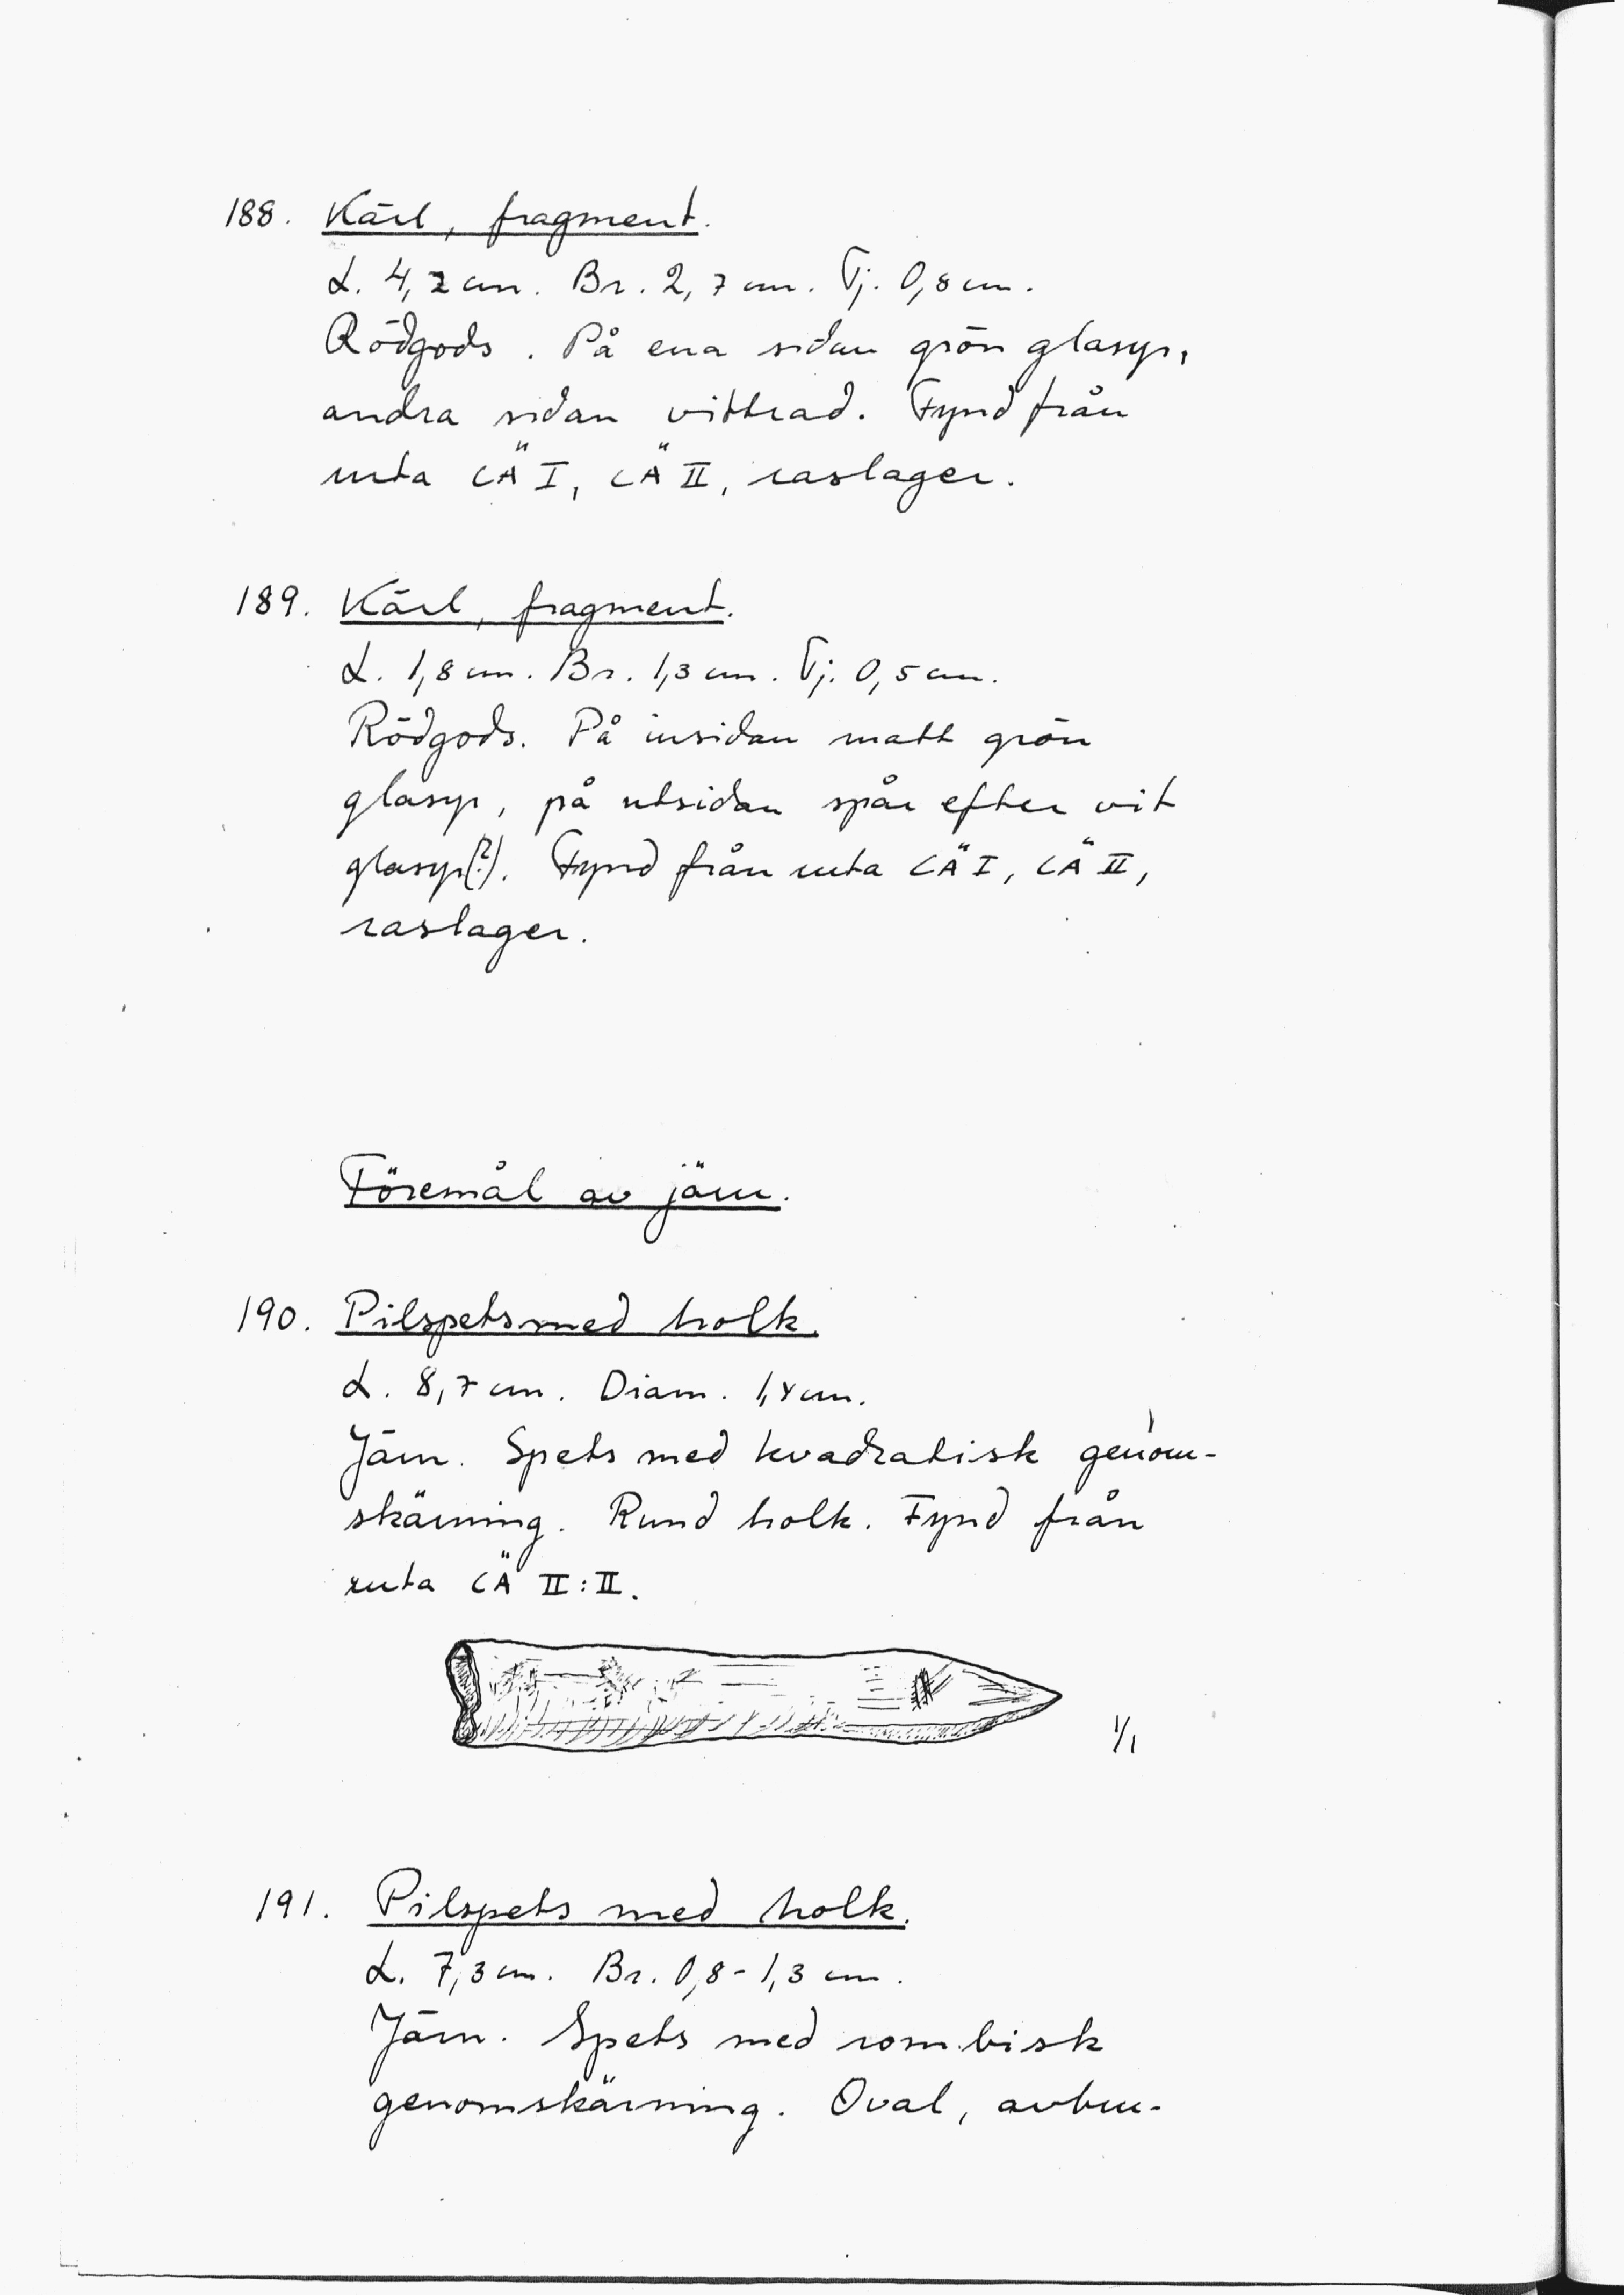 188. Kärl, fragment.
L. 4,2 cm. Br. 2,7 cm. Tj. 0,8 cm.
Rödgods. På ena sidan grön glasyr,
andra sidan vittrad. Fynd från
ruta CÄ I, CÄ II, raslager.
189. Kärl, fragment.
L. 1,8 cm. Br. 1,3 cm. Tj. 0,5 cm.
Rödgods. På insidan matt grön
glasyr, på utsidan spår efter vit
glasyr(?). Fynd från ruta CÄ I, CÄ II,
raslager.
Föremål av järn.
190. Pilspets med holk.
L. 8,7 cm. Diam. 1,4 cm.
Järn. Spets med kvadratisk genom-
skärning. Rund holk. Fynd från
ruta CÄ II:II.
1/1
191. Pilspets med holk.
L. 7,3 cm. Br. 0,8-1,3 cm.
Järn. Spets med rombisk
genomskärning. Oval, avbru-